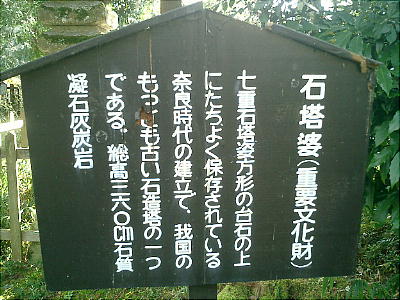 石塔婆(重要文化財)
七重石塔婆方形の台石の上
にたちよく保存されている
奈良時代の建立で、我国の
もっとも古い石造塔の一つ
である、総高三六〇cm石質
凝石灰炭岩